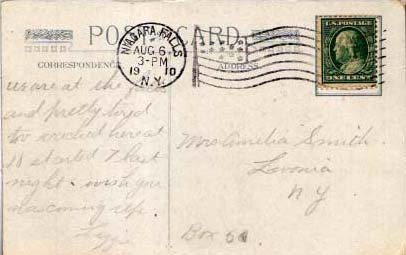 POST CARD
NIAGARA FALLS
AUG 6
3-PM
1910
N.Y.
U.S. POSTAGE
ONE CENT
CORRESPONDENCE
ADDRESS
we are at the
and pretty tired
too reached here at
10 started 7 last
night wish you
was coming up.
Mrs Amelia Smith.
Livonia
N Y
Box 60